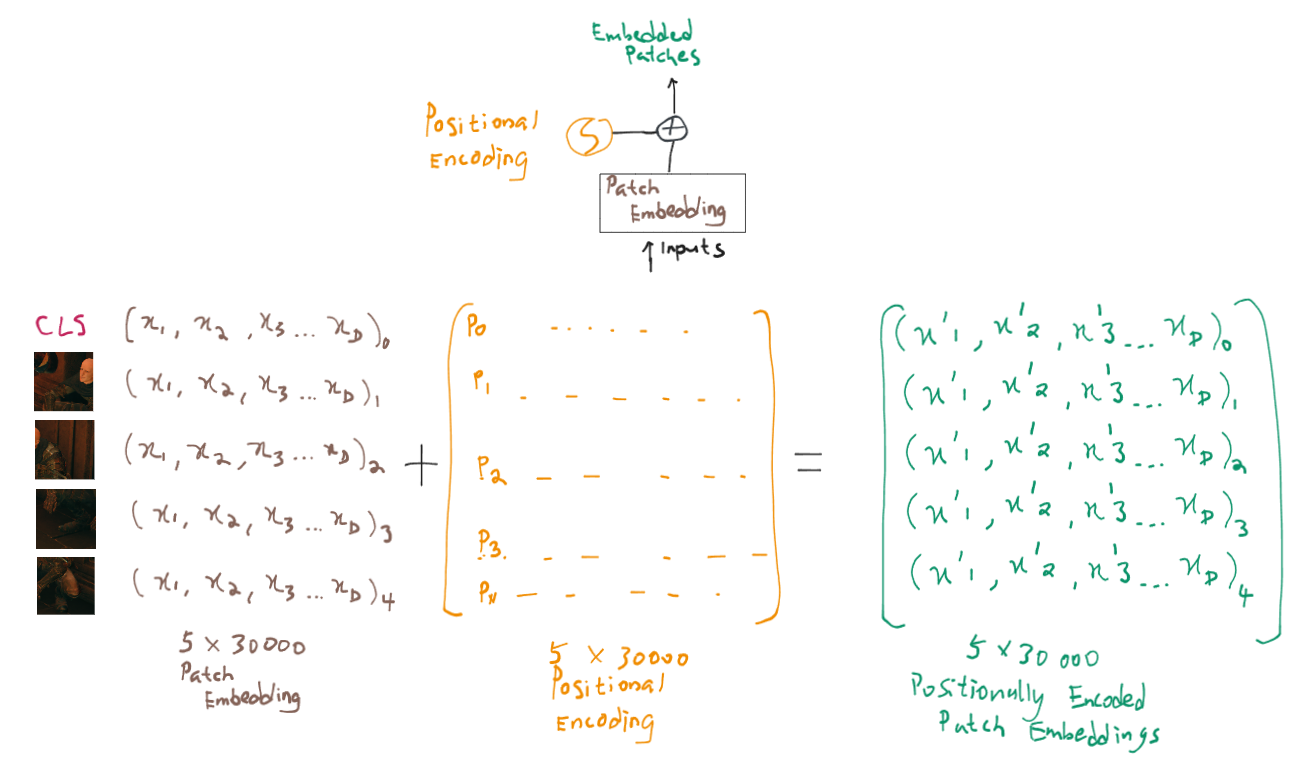 Embedded
Patches
Positional
Encoding
S
+
Patch
Embedding
Inputs
CLS (x1, x2, x3... xD)0
(x1, x2, x3... xD)1
(x1, x2, x3... xD)2
(x1, x2, x3... xD)3
(x1, x2, x3... xD)4
5 × 30000
Patch
Embedding
+
P0 . . . . - .
P1 - - - - - .
P2 - - - - -
P3 - - - - -
PN - - - - .
5 × 30000
Positional
Encoding
=
(x'1, x'2, x'3... xD)0
(x'1, x'2, x'3... xD)1
(x'1, x'2, x'3... xD)2
(x'1, x'2, x'3... xD)3
(x'1, x'2, x'3... xD)4
5 × 30 000
Positionally Encoded
Patch Embeddings